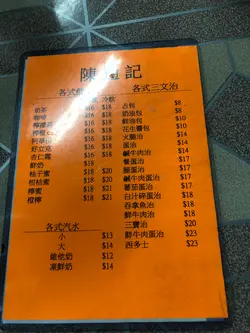 陳 記
各式 冷飲
奶茶 $16 $18
咖啡 $16 $18
檸檬 $16 $18
檸檬 $16 $18
阿華田 $16 $18
好立克 $16 $18
杏仁霜 $16 $18
鮮奶 $18
柚子蜜 $18 $20
柑桔蜜 $18 $20
檸蜜 $18 $21
$18 $21
各式汽水
小 $13
大 $14
維他奶 $12
凍鮮奶 $14
各式三文治
占包 $8
奶油包 $8
鮮油包 $10
花生醬包 $10
火腿治 $14
蛋治 $14
鹹牛肉治
餐蛋治
腸蛋治
鹹牛肉蛋治
蕃茄蛋治
白汁碎蛋治
吞拿魚治
鮮牛肉治
三寶治 $20
鮮牛肉蛋治 $23
西多士 $23